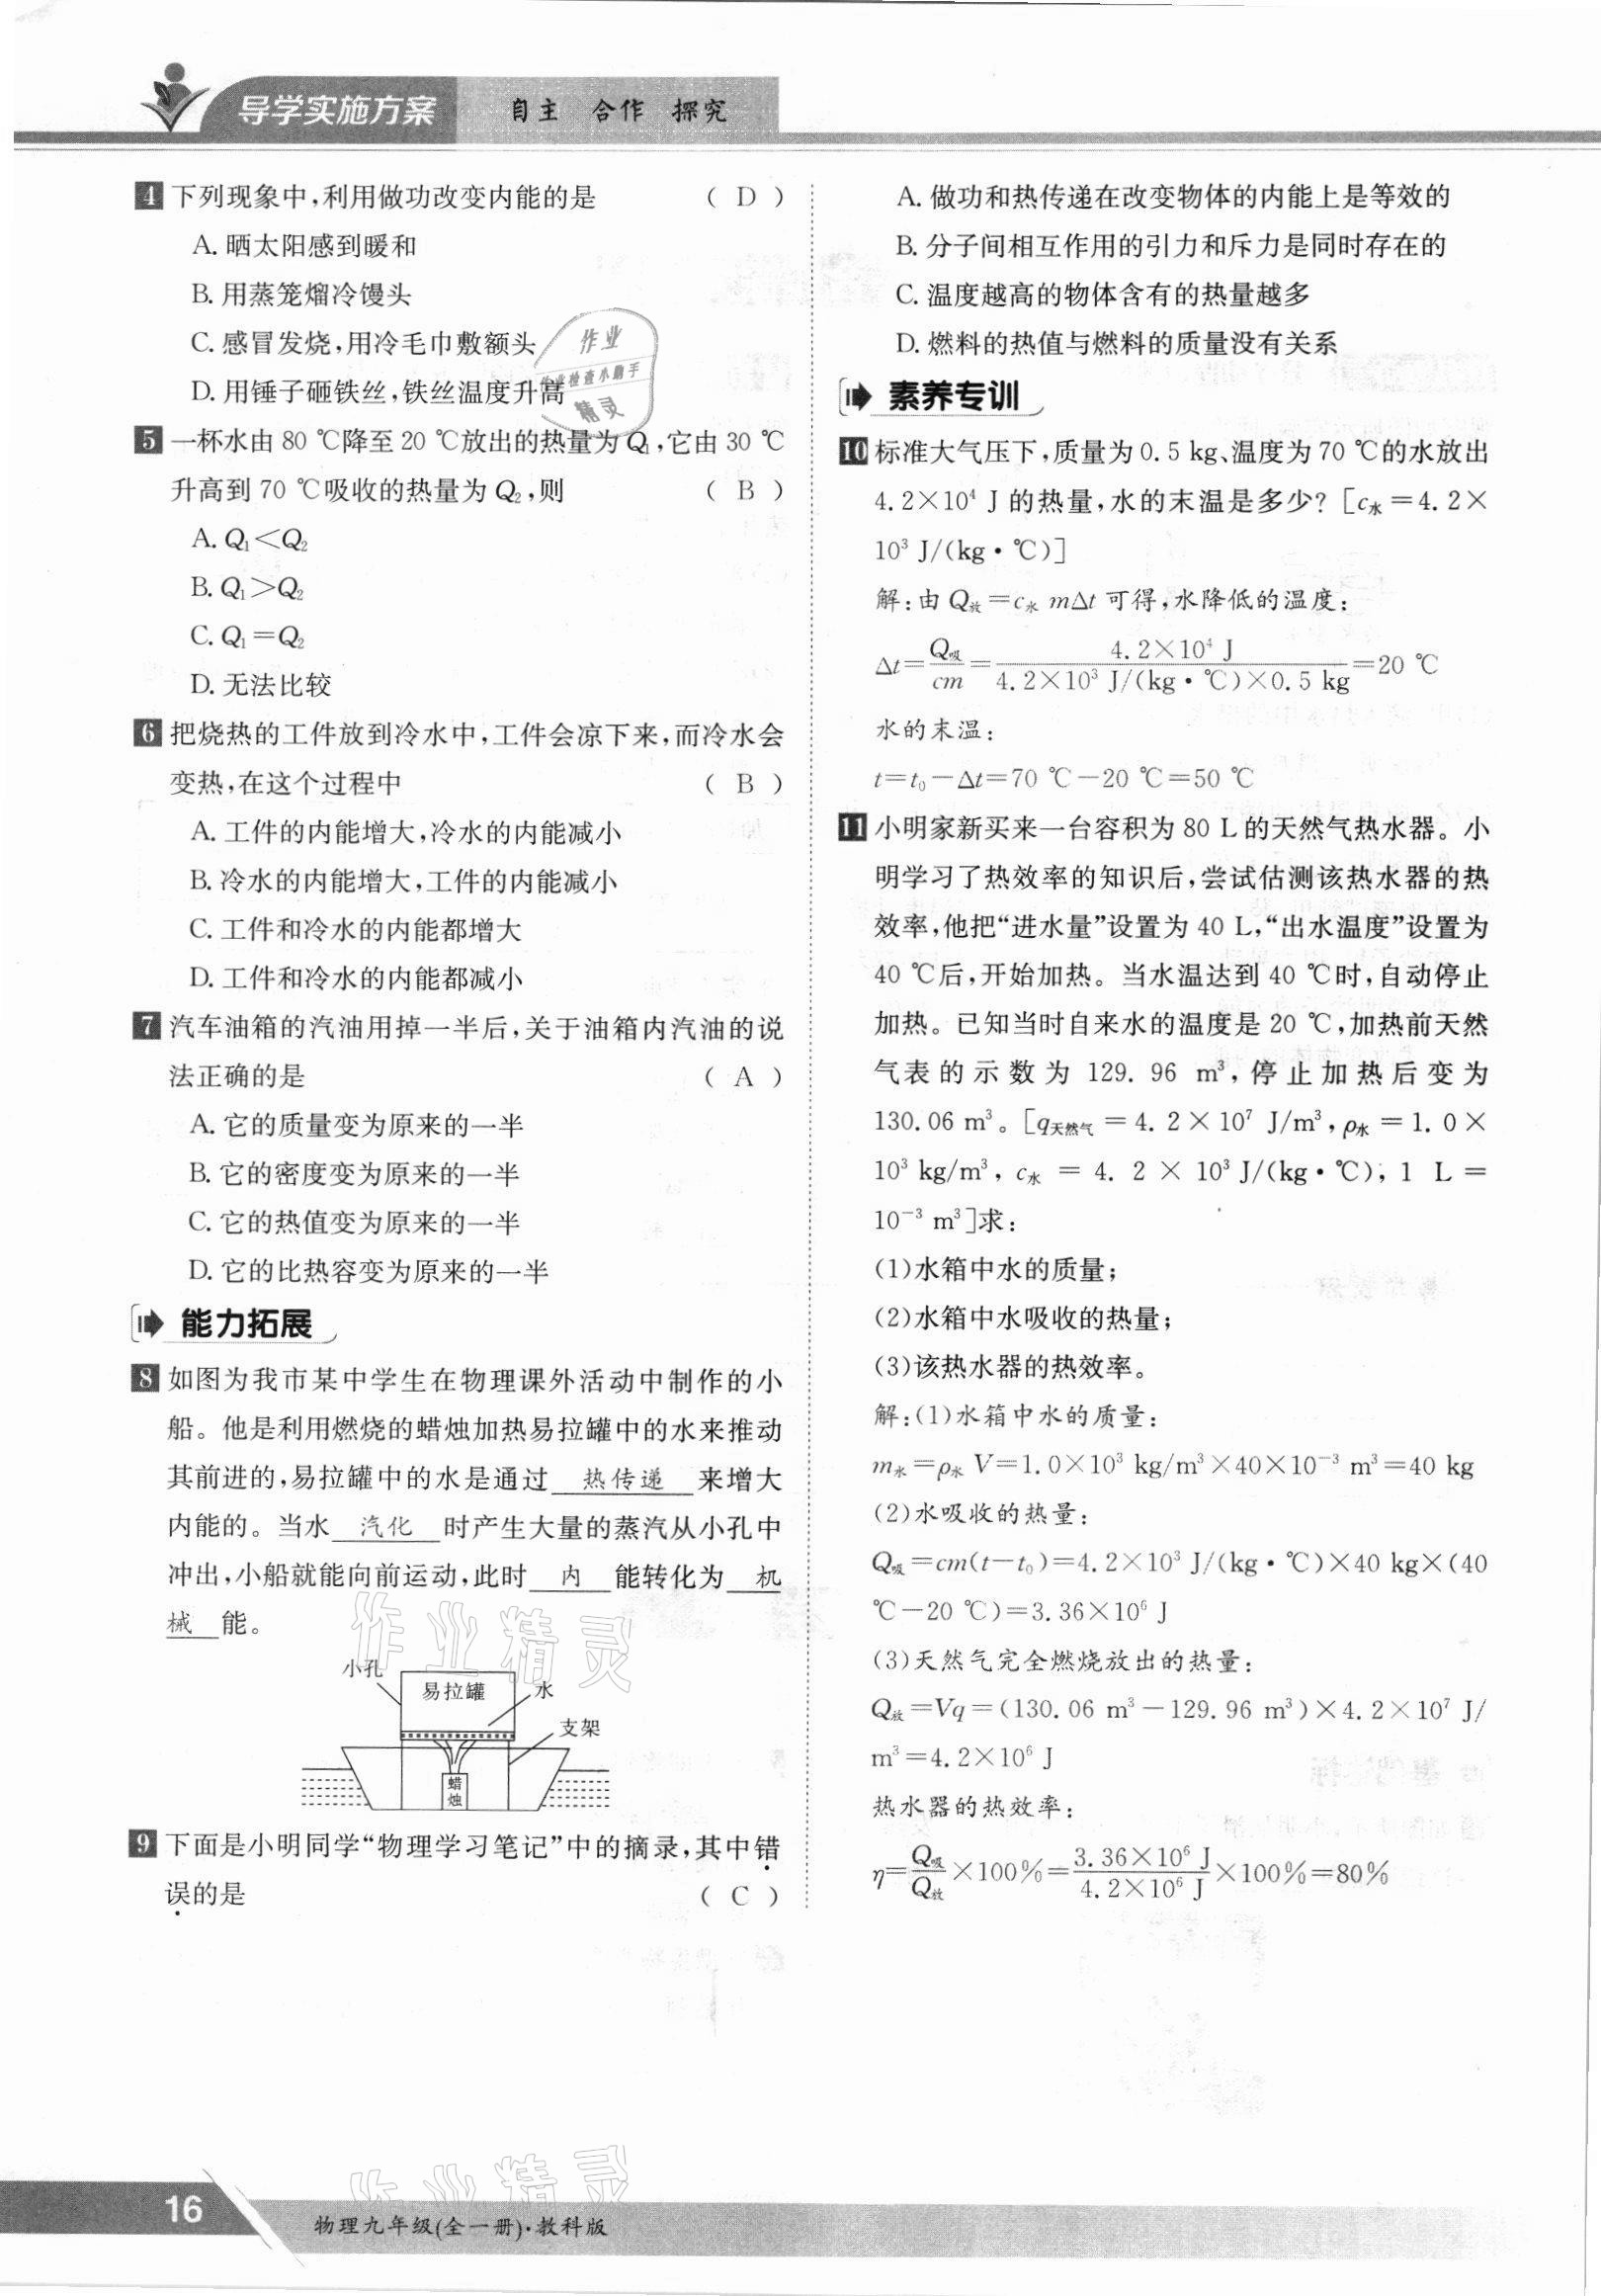 导学实施方案 自主 合作 探究
4 下列现象中,利用做功改变内能的是 ( D )
A. 晒太阳感到暖和
B. 用蒸笼熘冷馒头
C. 感冒发烧,用冷毛巾敷额头
D. 用锤子砸铁丝,铁丝温度升高
5 一杯水由 80 ℃降至 20 ℃放出的热量为 Q₁,它由 30 ℃
升高到 70 ℃吸收的热量为 Q₂,则 ( B )
A. Q₁＜Q₂
B. Q₁＞Q₂
C. Q₁＝Q₂
D. 无法比较
6 把烧热的工件放到冷水中,工件会凉下来,而冷水会
变热,在这个过程中 ( B )
A. 工件的内能增大,冷水的内能减小
B. 冷水的内能增大,工件的内能减小
C. 工件和冷水的内能都增大
D. 工件和冷水的内能都减小
7 汽车油箱的汽油用掉一半后,关于油箱内汽油的说
法正确的是 ( A )
A. 它的质量变为原来的一半
B. 它的密度变为原来的一半
C. 它的热值变为原来的一半
D. 它的比热容变为原来的一半
能力拓展
8 如图为我市某中学生在物理课外活动中制作的小
船。他是利用燃烧的蜡烛加热易拉罐中的水来推动
其前进的,易拉罐中的水是通过 热传递 来增大
内能的。当水 汽化 时产生大量的蒸汽从小孔中
冲出,小船就能向前运动,此时 内 能转化为 机
械 能。
小孔
易拉罐
水
支架
蜡烛
9 下面是小明同学“物理学习笔记”中的摘录,其中错
误的是 ( C )
A. 做功和热传递在改变物体的内能上是等效的
B. 分子间相互作用的引力和斥力是同时存在的
C. 温度越高的物体含有的热量越多
D. 燃料的热值与燃料的质量没有关系
素养专训
10 标准大气压下,质量为 0.5 kg、温度为 70 ℃的水放出
4.2×10⁴ J 的热量,水的末温是多少? [c水＝4.2×
10³ J/(kg·℃)]
解:由 Q放＝c水 mΔt 可得,水降低的温度:
Δt＝Q吸/cm＝4.2×10⁴ J/4.2×10³ J/(kg·℃)×0.5 kg＝20 ℃
水的末温:
t＝t₀－Δt＝70 ℃－20 ℃＝50 ℃
11 小明家新买来一台容积为 80 L 的天然气热水器。小
明学习了热效率的知识后,尝试估测该热水器的热
效率,他把“进水量”设置为 40 L,“出水温度”设置为
40 ℃后,开始加热。当水温达到 40 ℃时,自动停止
加热。已知当时自来水的温度是 20 ℃,加热前天然
气表的示数为 129.96 m³,停止加热后变为
130.06 m³。[q天然气＝4.2×10⁷ J/m³,ρ水＝1.0×
10³ kg/m³,c水＝4.2×10³ J/(kg·℃),1 L＝
10⁻³ m³]求:
(1)水箱中水的质量;
(2)水箱中水吸收的热量;
(3)该热水器的热效率。
解:(1)水箱中水的质量:
m水＝ρ水 V＝1.0×10³ kg/m³×40×10⁻³ m³＝40 kg
(2)水吸收的热量:
Q吸＝cm(t－t₀)＝4.2×10³ J/(kg·℃)×40 kg×(40
℃－20 ℃)＝3.36×10⁶ J
(3)天然气完全燃烧放出的热量:
Q放＝Vq＝(130.06 m³－129.96 m³)×4.2×10⁷ J/
m³＝4.2×10⁶ J
热水器的热效率:
η＝Q吸/Q放×100%＝3.36×10⁶ J/4.2×10⁶ J×100%＝80%
作业
作业检查小助手
精灵
作业精灵
作业精灵
16
物理九年级(全一册)·教科版